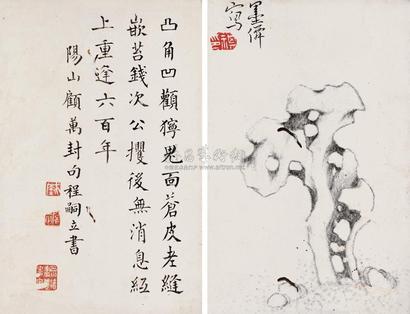 凸角凹顴獰鬼面蒼皮老縫
嵌苔錢次公攫後無消息經
上重逢六百年
陽山顧萬封句程嗣立書
墨俾
寫